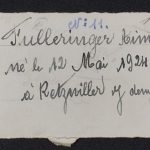 N° 11.
Fulleringer Aim
né le 12 Mai 1924
à Retzwiller y dom